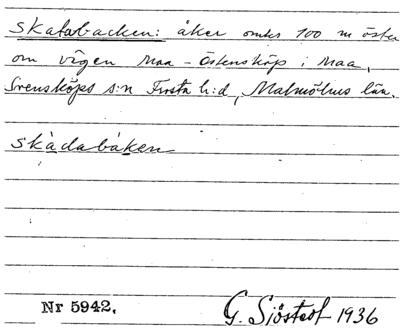 Skatabacken: åker omkr 100 m öster
om vägen Maa - Östensköp i Maa,
Svensköps s:n Frosta h:d, Malmöhus län.
skàdabáken
Nr 5942.
G. Sjöstedt 1936